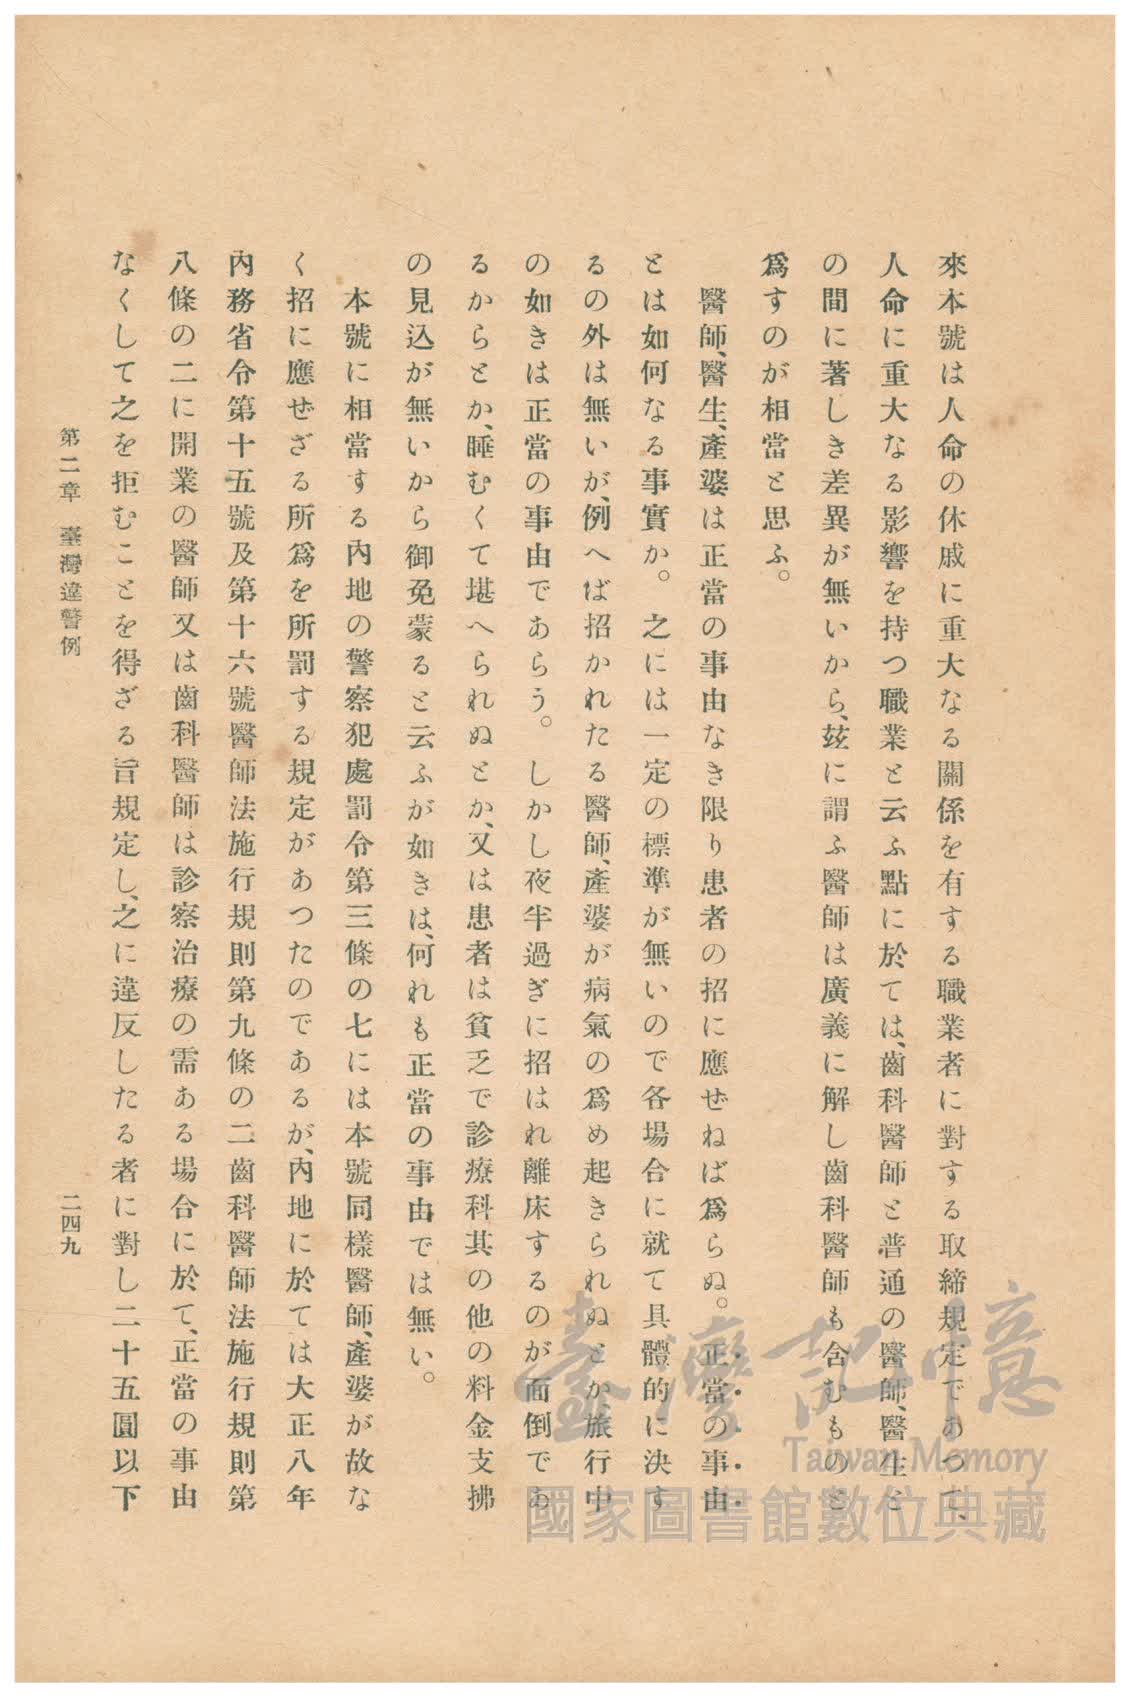 來本號は人命の休戚に重大なる關係を有する職業者に對する取締規定であつて、
人命に重大なる影響を持つ職業と云ふ點に於ては、齒科醫師と普通の醫師、醫生と
の間に著しき差異が無いから、玆に謂ふ醫師は廣義に解し齒科醫師も含むものと
爲すのが相當と思ふ。
醫師、醫生、產婆は正當の事由なき限り患者の招に應ぜねば爲らぬ。正當の事由
とは如何なる事實か。之には一定の標準が無いので各場合に就て具體的に決す
るの外は無いが、例へば招かれたる醫師、產婆が病氣の爲め起きられぬとか、旅行中
の如きは正當の事由であらう。しかし夜半過ぎに招はれ離床するのが面倒であ
るからとか、睡むくて堪へられぬとか、又は患者は貧乏で診療科其の他の料金支拂
の見込が無いから御免蒙ると云ふが如きは、何れも正當の事由では無い。
本號に相當する內地の警察犯處罰令第三條の七には本號同樣醫師、產婆が故な
く招に應ぜざる所爲を所罰する規定があつたのであるが、內地に於ては大正八年
內務省令第十五號及第十六號醫師法施行規則第九條の二齒科醫師法施行規則第
八條の二に開業の醫師又は齒科醫師は診察治療の需ある場合に於て、正當の事由
なくして之を拒むことを得ざる旨規定し、之に違反したる者に對し二十五圓以下
第二章　臺灣違警例
二四九
臺灣記憶
Taiwan Memory
國家圖書館數位典藏